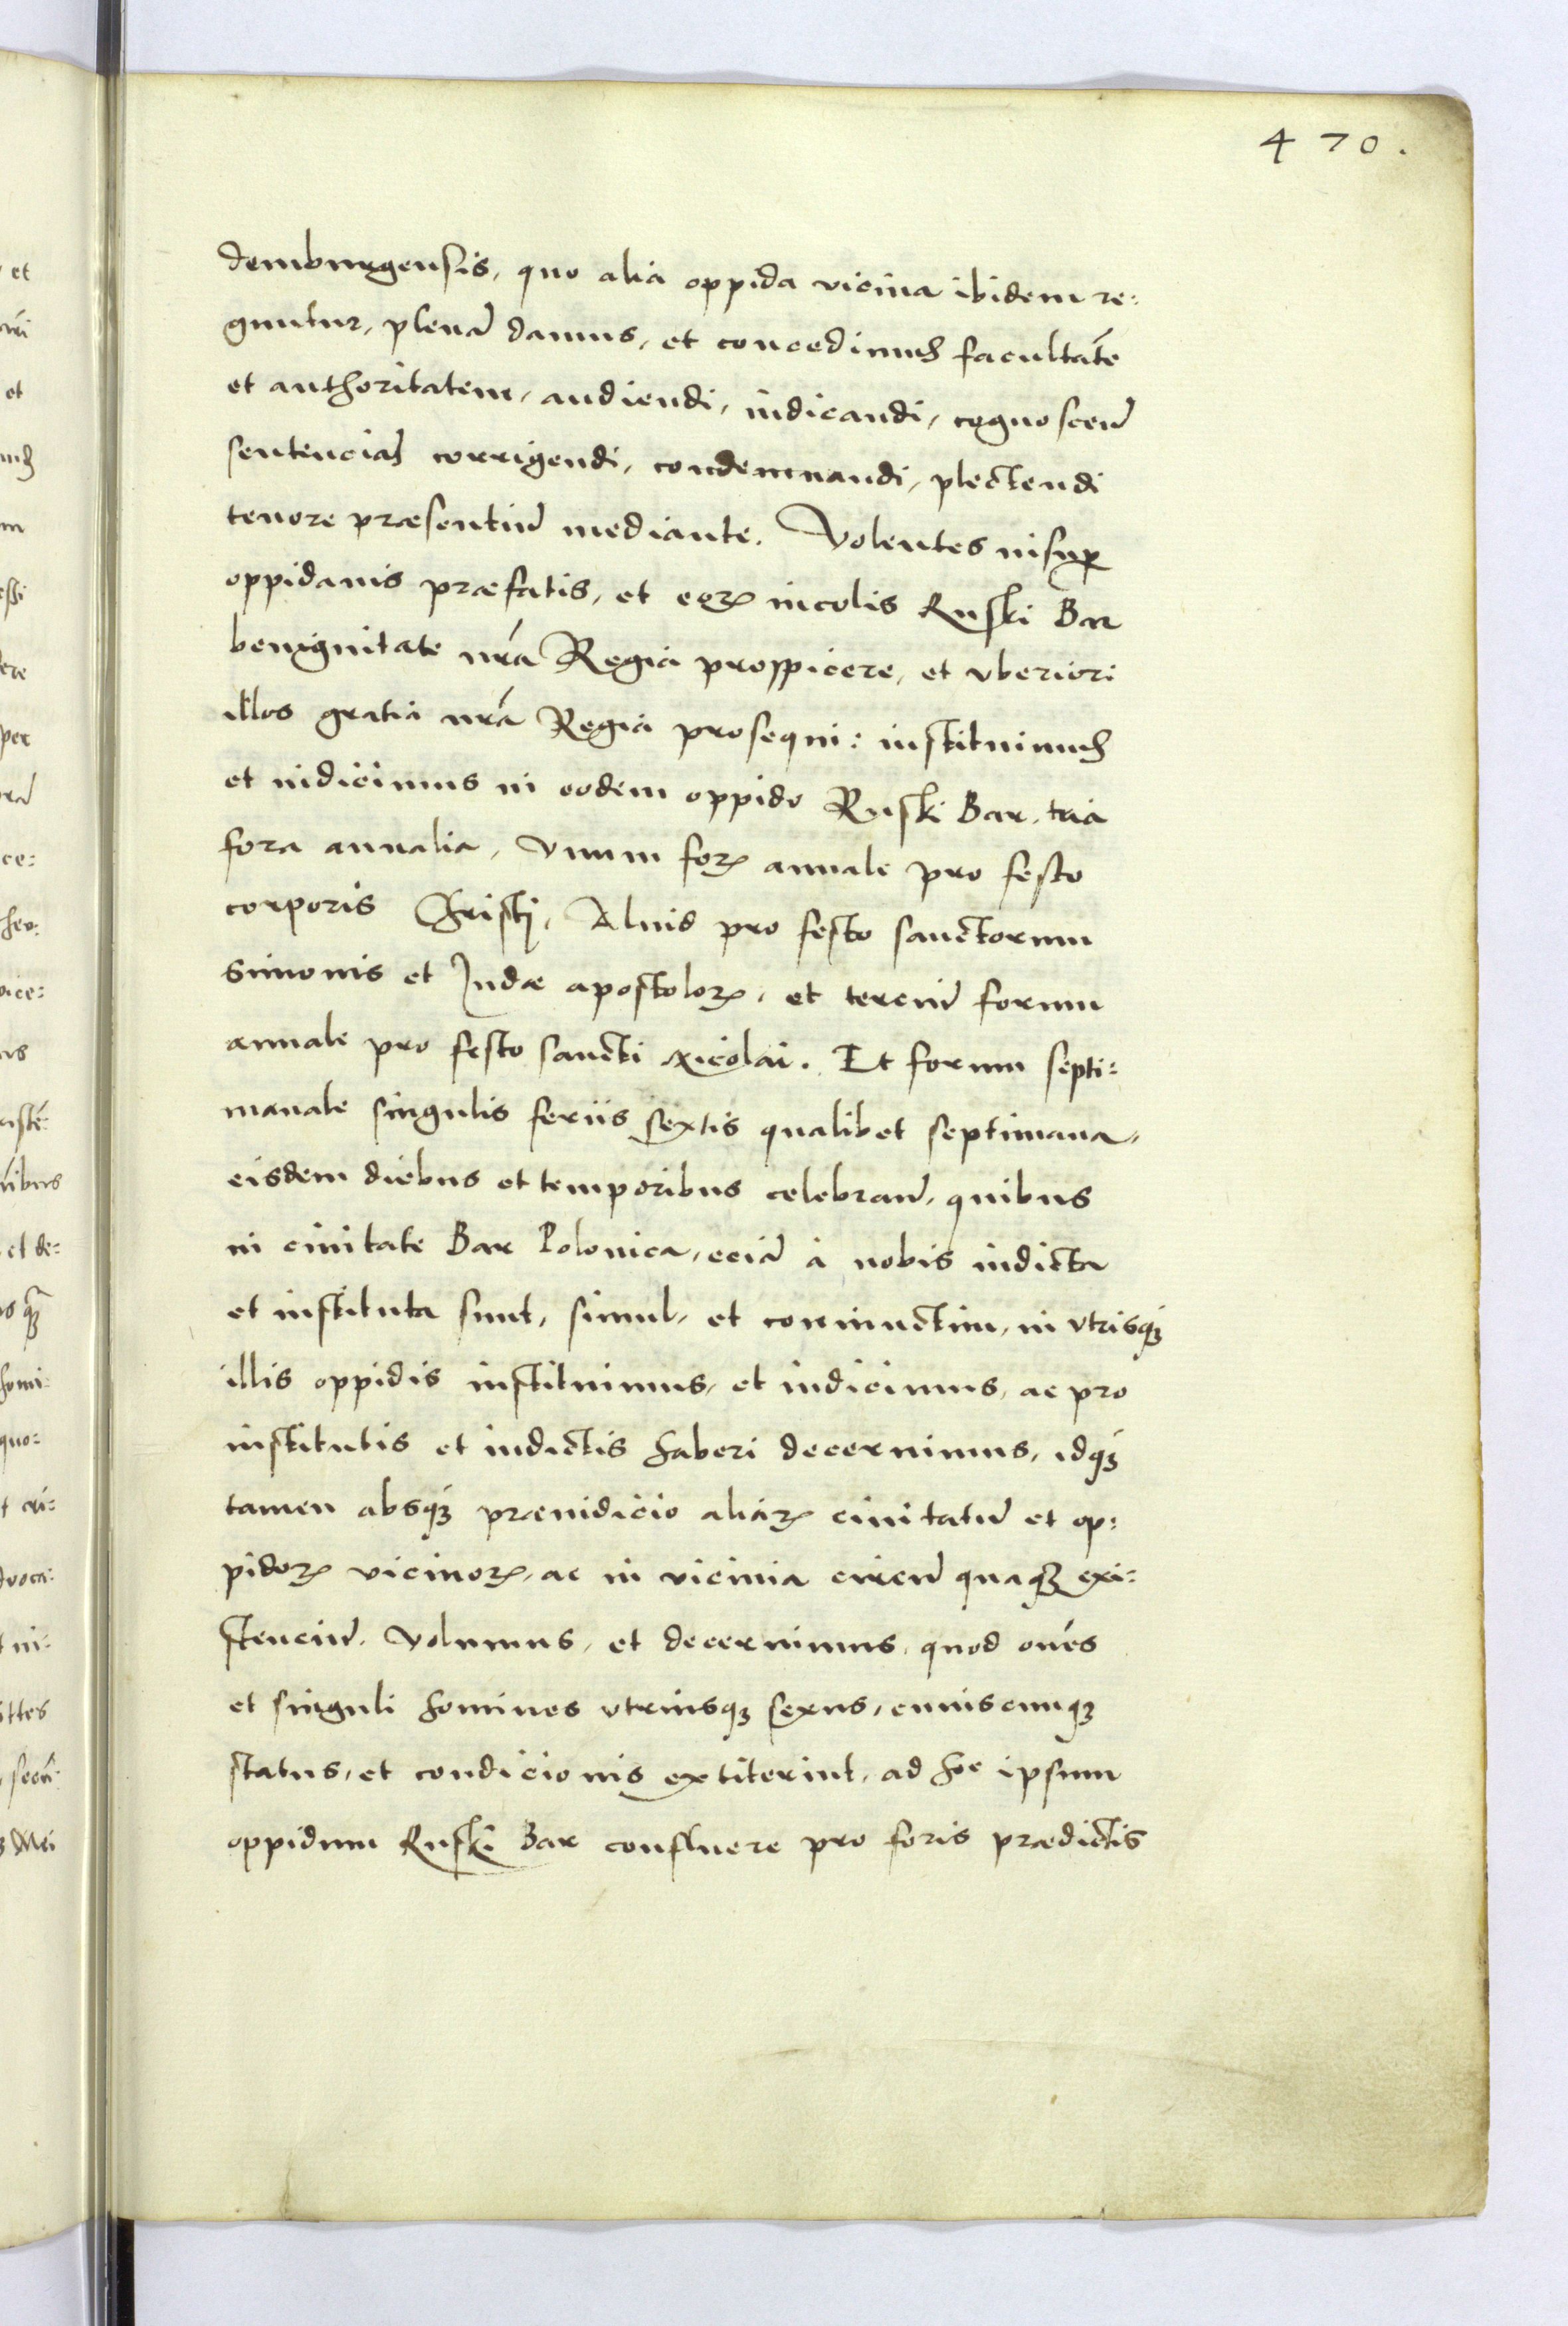 470.
demburgensis, quo alia oppida vicina ibidem re:
guntur, plenā damus, et concedimus facultatē
et authoritatem, audiendi, iudicandi, cognoscen̄
sentencias corrigendi, condemnandi, plectendi
tenore præsentiū mediante. Volentes insuꝑ
oppidanis præfatis, et eoꝝ incolis Ruski Bar
benignitate nrā Regia prospicere, et vberiori
illos gratia nrā Regia prosequi: instituimus
et indicimus in eodem oppido Ruski Bar, tria
fora annalia, Vnum foꝝ annale pro festo
corporis Christj, Aliud pro festo sanctorum
Simonis et Judæ apostoloꝝ, et terciū forum
annale pro festo sancti Nicolai. Et forum septi:
manale singulis feriis sextis qualibet septimana,
eisdem diebus et temporibus celebran̄, quibus
in ciuitate Bar Polonica, eciā à nobis indicta
et instituta sunt, simul, et coniunctim, in vtrisqꝫ
illis oppidis instituimus, et indicimus, ac pro
institutis et indictis haberi decernimus, idqꝫ
tamen absqꝫ præiudicio aliaꝝ ciuitatū et op:
pidoꝝ vicinoꝝ, ac in vicinia circū quaqꝫ exi:
stenciū. Volumus, et decernimus, quod oēs
et singuli homines vtriusqꝫ sexus, cuiuscunqꝫ
status, et condicionis extiterint, ad hoc ipsum
oppidum Ruski Bar confluere pro foris prædictis